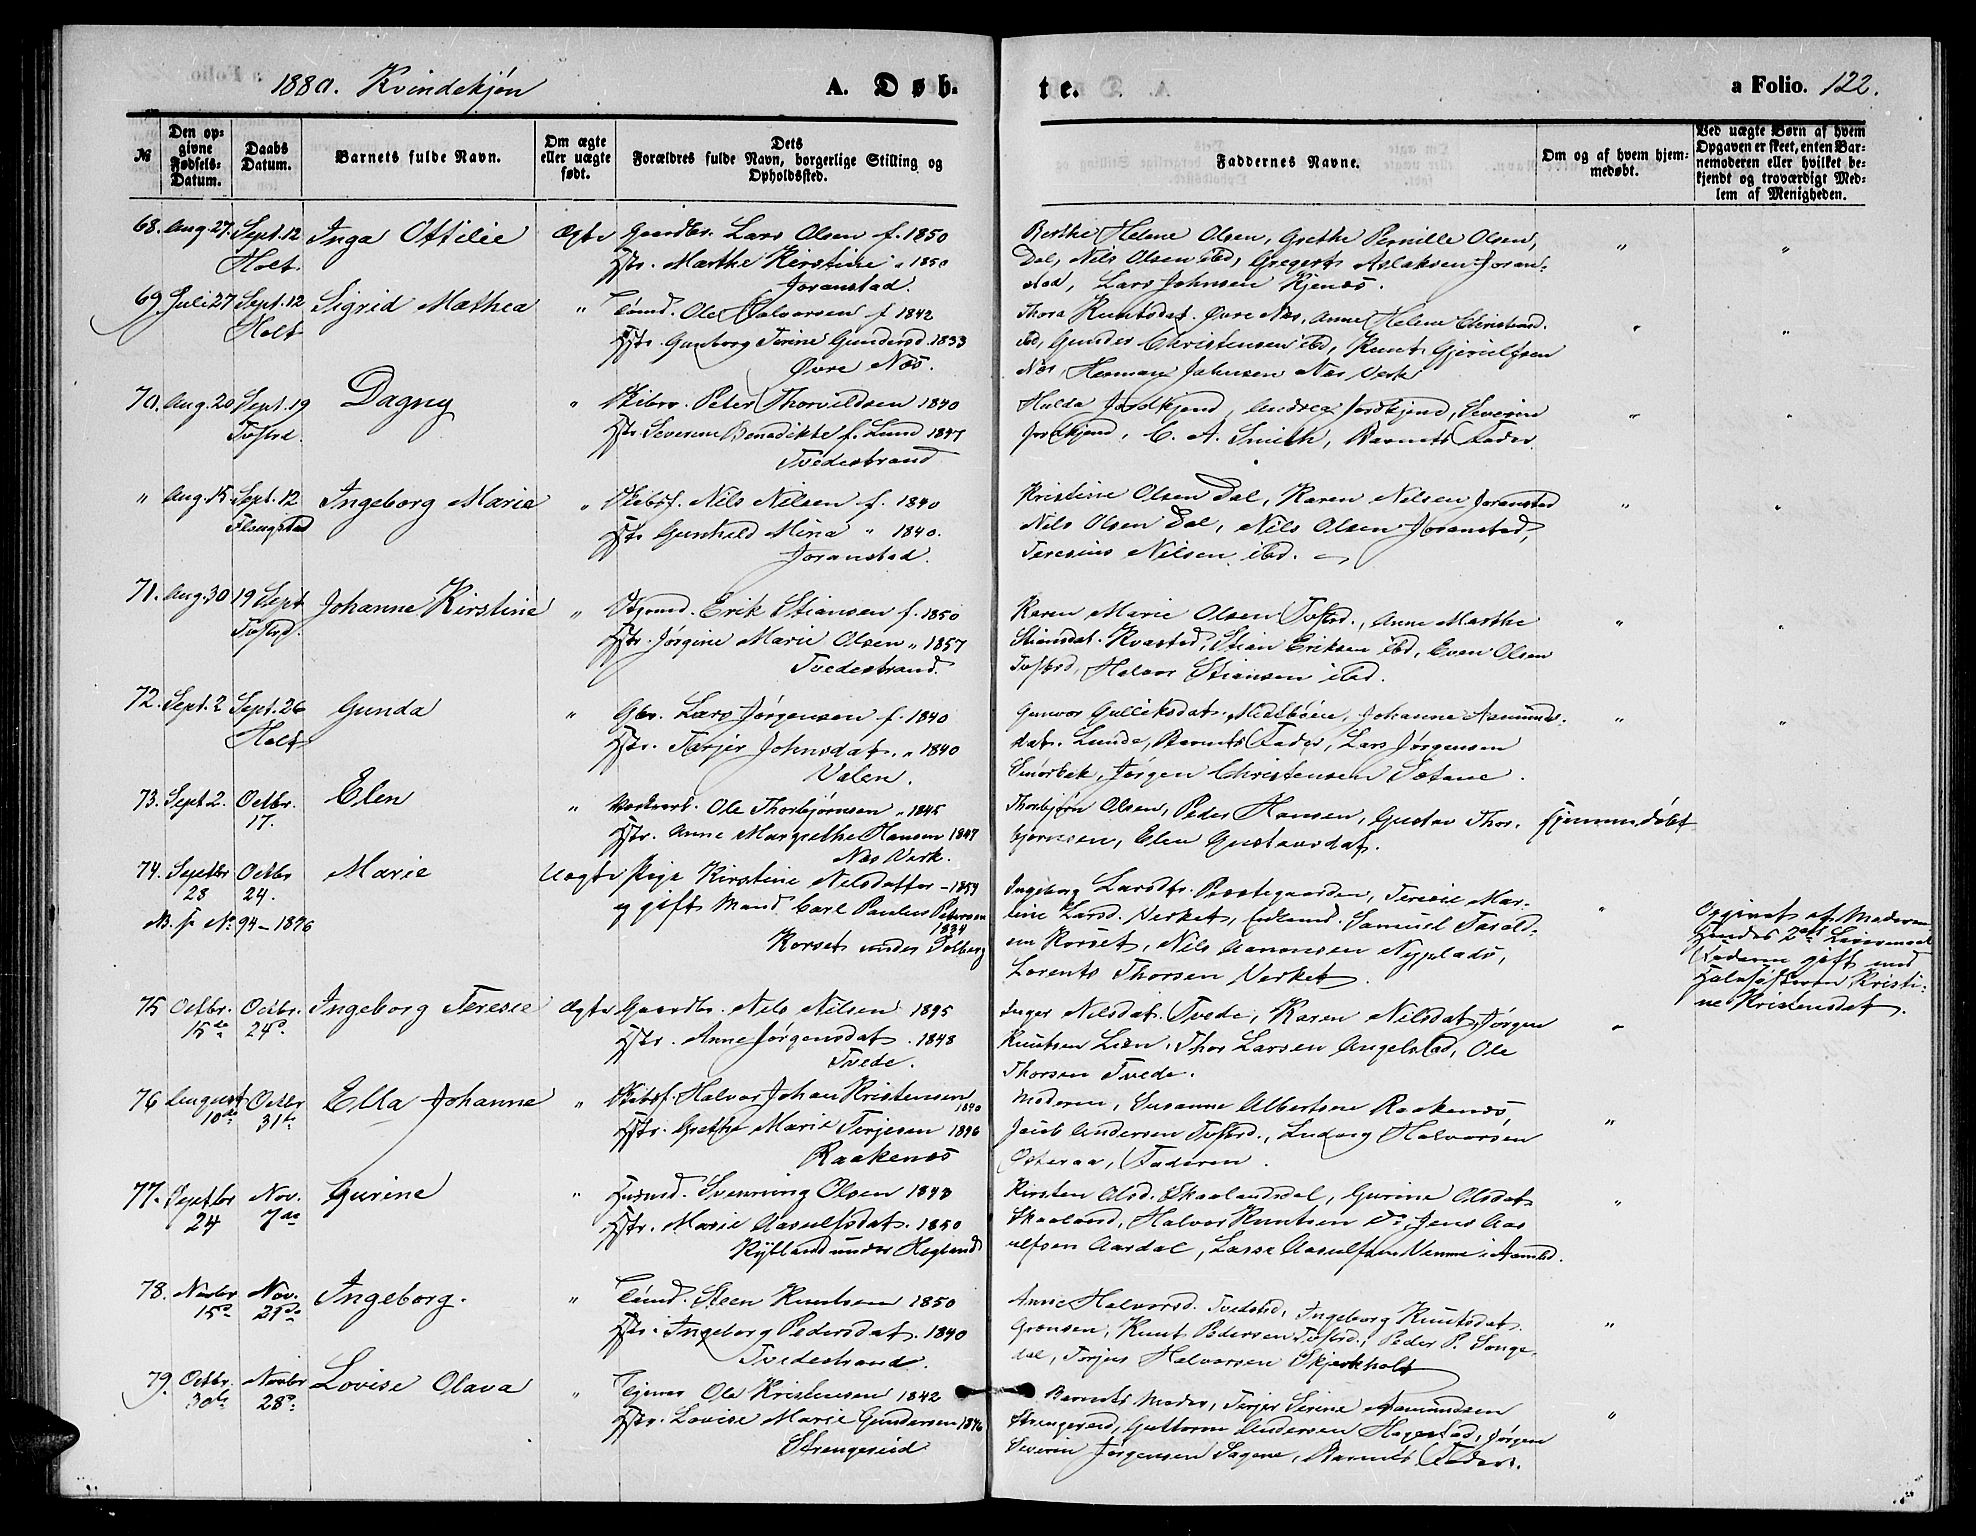 1880. Kvindekjøn
A. Døb-
te.
a Folio. 122.
№
Den op-
givne
Fødsels-
Datum.
Daabs
Datum.
Barnets fulde Navn.
Om ægte
eller uægte
født.
Dets
Forældres fulde Navn, borgerlige Stilling og
Opholdssted.
Faddernes Navne.
Om og af hvem hjem-
medøbt.
Ved uægte Børn af hvem
Opgaven er skeet, enten Bar-
nemoderen eller hvilket be-
kjendt og troværdigt Med-
lem af Menigheden.
68. Aug. 27. Sept. 12 Inga Ottilie Ægte Gaardbr. Lars Olsen f. 1850
Holt. Hstr. Marthe Kirstine " 1850
Joranstad.
Berthe Helene Olsen, Grethe Pernille Olsen,
Dal, Nils Olsen ibd, Gregert Aslaksen Joran-
stad, Lars Johnsen Kjenes. " "
69. Juli 27 Sept. 12 Sigrid Mathea " Tømd. Ole Halvorsen f 1842
Holt Hstr. Gunborg Terine Gundersd. 1833
Øvre Næs.
Thora Knutsdat. Øvre Næs, Anne Helene Christensd.
ibd, Gunder Christensen ibd, Knut Gjeruldsen
Næs, Herman Jakensen Næs Verk " "
70. Aug. 20 Sept. 19 Dagny " Skibsr. Peter Thorvildsen 1840
Tvstrd. Hstr Severine Benedikte f. Lund 1847
Tvedestrand
Hulda Jordkjend, Andrea Jordkjend, Severin
Jordkjend, C. A. Smith, Barnets Fader. " "
" Aug. 15 Sept. 12 Ingeborg Marie " Skibsf. Nils Nilsen f. 1840
Flangstad Hstr Gunhild Mina " 1840.
Joranstad.
Kristine Olsen Dal, Karen Nilsen Joranstad
Nils Olsen Dal, Nils Olsen Joranstad,
Teresius Nilsen ibd. " "
71. Aug. 30 19 Sept Johanne Kirstine " Erik Stiansen f. 1850
Tvstrd. Hstr. Jørgine Marie Olsen " 1857
Tvedestrand.
Karen Marie Olsen Tvstrd., Anne Marthe
Stiansdat. Kvastad, Stian Eriksen ibd, Even Olsen
Tvstrd, Halvor Stiansen ibd. " "
72. Sept. 2 Sept. 26 Gunda " Gbr. Lars Jørgensen f. 1840
Holt Hstr. Terjer Johnsdat. " 1840
Valen.
Gunvor Gulliksdat. Midtbøen, Johanne Asmunds-
dat. Lunde, Barnets Fader, Lars Jørgensen
Smørbek, Jørgen Christensen Sætane. " "
73. Sept. 2. Octbr. Elen " Ole Thorbjørnsen " 1845
17. Hstr. Anne Margrethe Hansen 1847
Næs Verk.
Thorbjørn Olsen, Peder Hansen, Gustav Thor-
bjørnsen, Elen Gustavsdat. Hjemmedøbt
74. Septbr Octbr Marie Uægte Pige Kirstine Nilsdatter - 1854
23 24. og gift Mand Carl Paulus Petersen
1834
NB. fr No 94 - 1876
Korset under Solberg
Ingeborg Larsdt. Præstegaarden, Teresie Mar-
line Larsd. Verket, Samuel Tarald-
sen Korset, Nils Aanonsen Nyplads,
Lorents Thorsen Verket. "
Opgivet af Moderen
Hendes 2det Leiermaal
Faderen gift med
Halvsøsteren Kristi-
ne Kristensdat.
75 Octbr. Octbr. Ingeborg Teresie Ægte Gaardbr. Nils Nilsen 1845
15de 24de Hstr. Anne Jørgensdat. 1848
Tvede.
Inger Nilsdat. Tvede, Karen Nilsdat, Jørgen
Knutsen Lien, Thor Larsen Angelstad, Ole
Thorsen Tvede. "
76 August Octbr Ella Johanne " Skibsf. Halvor Johan Kristensen
1840
10de 31te Hstr. Grethe Marie Terjesen 1846
Raakenæs
Moderen, Susanne Albertsen Raakenæs
Jacob Andersen Tvstrd., Ludvig Halvorsen
Osteraa, Faderen. "
77. Septbr Nov. Gurine " Husmd. Svenning Olsen 1843
24 7de Hstr. Marie Aasulfsdat. 1850
Rylland under Heglend
Kirsten Olsd. Skaalandsdal, Gurine Olsdat
Skaaland, Halvor Knutsen do, Jens Aas-
ulfsen Aardal, Lasse Aasulfsen Venme i Aamlid. "
78. Novbr Nov. Ingeborg. " Tømd. Steen Knutsen 1850
15de 21de Hstr. Ingeborg Pedersdat. 1840
Tvedestrand.
Anne Halvorsd. Tvedstrd, Ingeborg Knutsdat.
Grønsen, Knut Pedersen Tvstrd., Peder P. Songe-
dal, Terjus Halvorsen Skjerkholt "
79. Octbr. Novbr Lovise Olava " Ole Kristensen 1842
30te 28de Hstr. Lovise Marie Gundersen 1846
Strengereid
Barnets Moder, Terjer Serine Asmundsen
Strengereid, Guttorm Andersen Hagestad, Jørgen
Severin Jørgensen Sagene, Barnets Fader. "